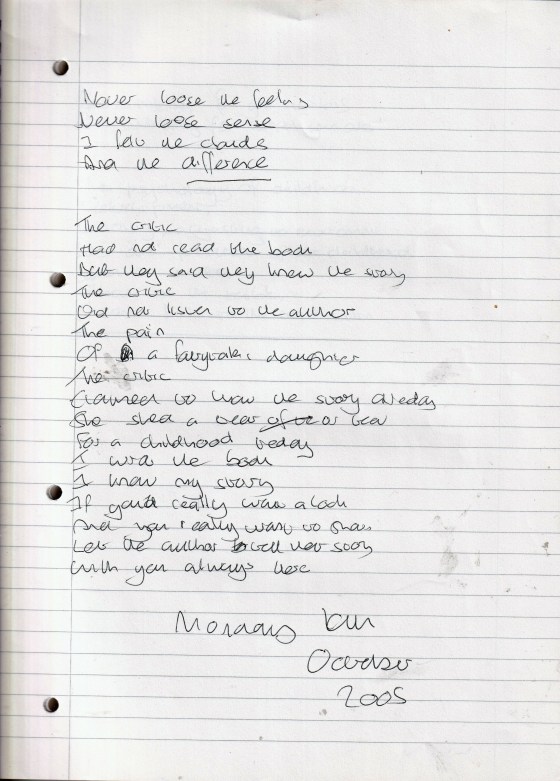 Never loose the feeling
Never loose sense
I felt the clouds
And the difference
The critic
Had not read the book
But they said they knew the story
The critic
Did not listen to the author
The pain
Of a fairytales daughter
The critic
Claimed to know the story already
She shed a tear or tea
For a childhood
I wrote the book
I know my story
If you really want a look
And you really want to
Let the author tell her story
With you always here
Monday
October
2005